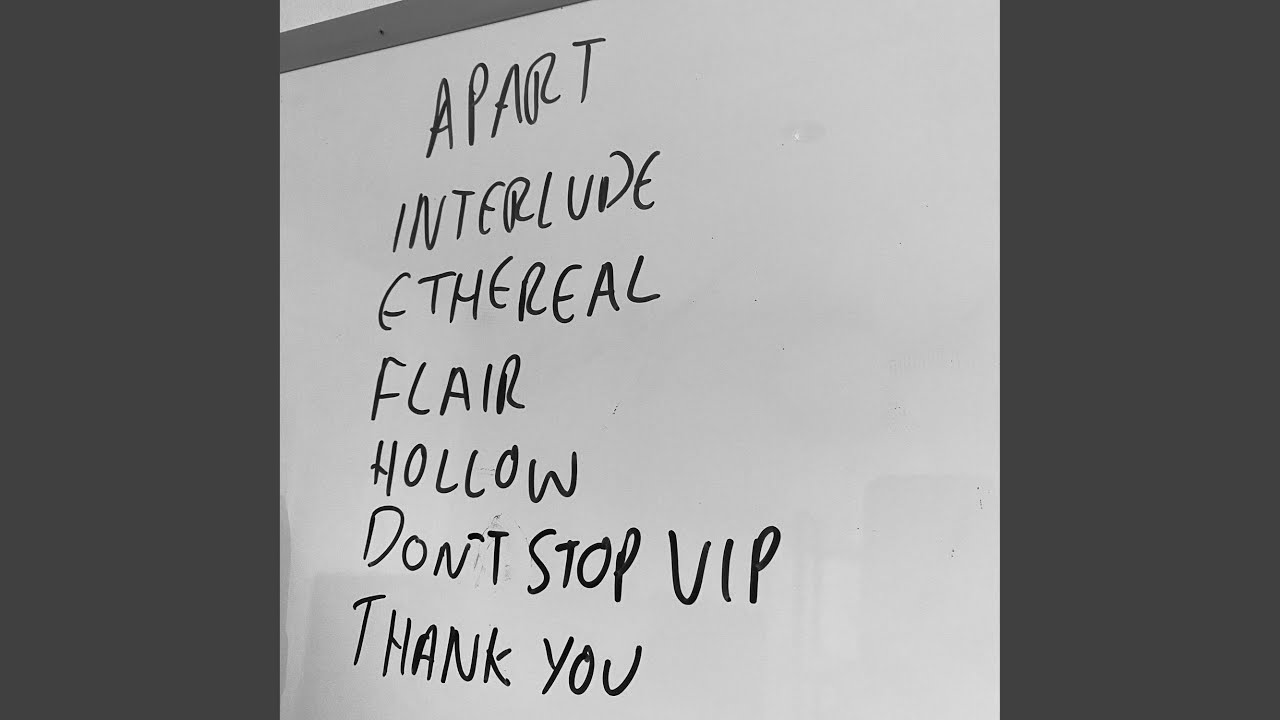 APART
INTERLUDE
ETHEREAL
FLAIR
HOLLOW
DON'T STOP VIP
THANK YOU